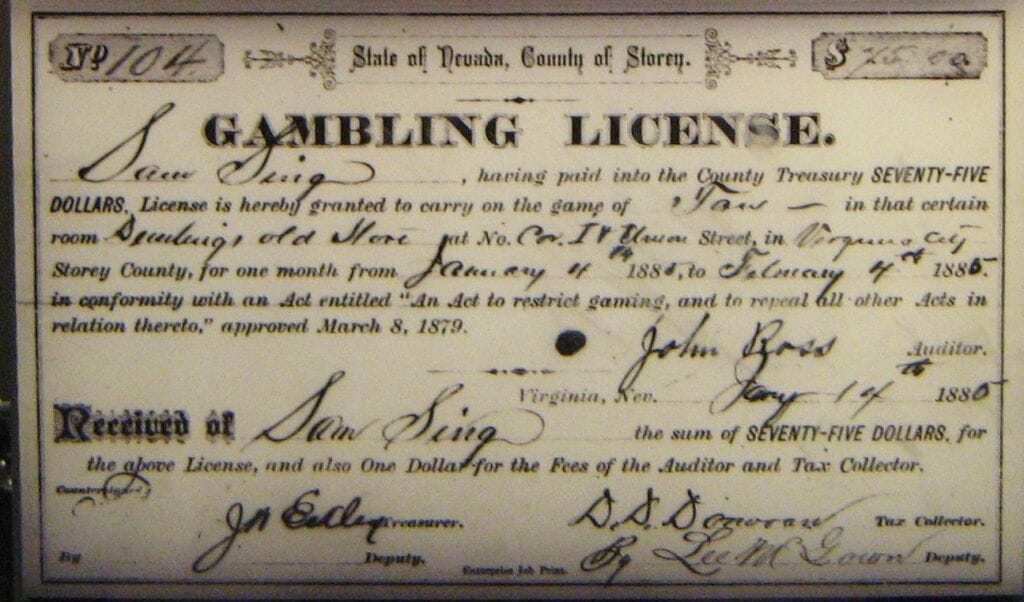 No 104. State of Nevada, County of Storey. $ 75.00
GAMBLING LICENSE.
Sam Sing, having paid into the County Treasury SEVENTY-FIVE
DOLLARS, License is hereby granted to carry on the game of Tan — in that certain
room old Store at No. Cor. Union Street, in Virginia City
Storey County, for one month from January 4th 1885, to February 4th 1885.
in conformity with an Act entitled "An Act to restrict gaming, and to repeal all other Acts in
relation thereto," approved March 8, 1879.
John Ross Auditor.
Virginia, Nev. Jany 14th 1885
Received of Sam Sing the sum of SEVENTY-FIVE DOLLARS, for
the above License, and also One Dollar for the Fees of the Auditor and Tax Collector.
Countersigned,
Treasurer. D. D. Donovan Tax Collector.
By Deputy. Enterprise Job Print. By Lee McGown Deputy.